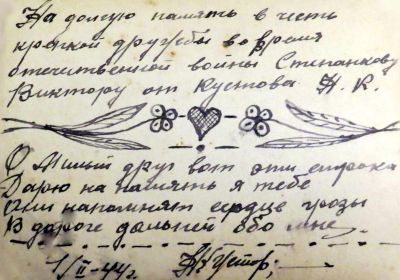 На долгую память в честь
крепкой дружбы во время
отечественной войны Степанкову
Виктору от Кустова Н. К.
О Милый друг вот эти строка
Дарю на память я тебе
Они напомнят сердце грозы
В дороге дальней обо мне
1/II-44г.